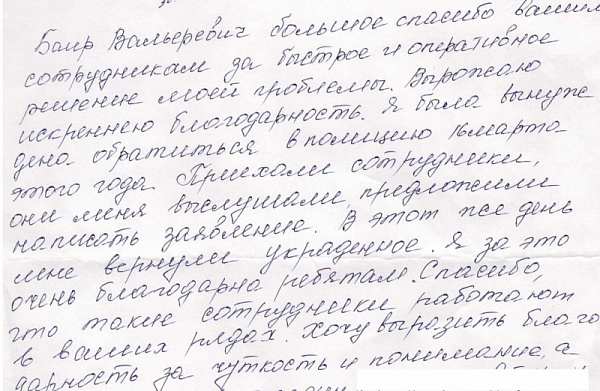 Баир Вальеревич большое спасибо вашим
сотрудникам за быстрое и оперативное
решение моей проблемы. Выражаю
искреннею благодарность. Я была вынуж
дена обратиться в полицию 16 марта
этого года. Приехали сотрудники,
они меня выслушали, предложили
написать заявление. В этот же день
мне вернули украденное. Я за это
очень благодарна ребятам. Спасибо,
что такие сотрудники работают
в ваших рядах. Хочу выразить благо
дарность за чуткость и понимание, а